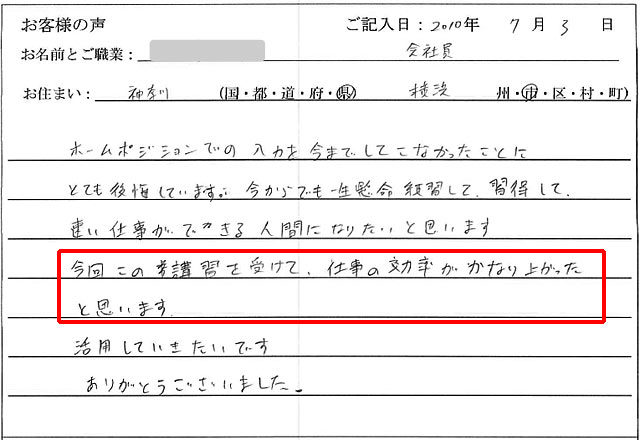 お客様の声 ご記入日：2010年 7月 3 日
お名前とご職業： 会社員
お住まい： 神奈川 (国・都・道・府・県) 横浜 州・市・区・村・町)
ホームポジションでの入力を今までしてこなかったことに
とても後悔しています。今からでも一生懸命練習して、習得して、
速い仕事ができる人間になりたいと思います
今回この 講習を受けて、仕事の効率がかなり上がった
と思います。
活用していきたいです
ありがとうございました。